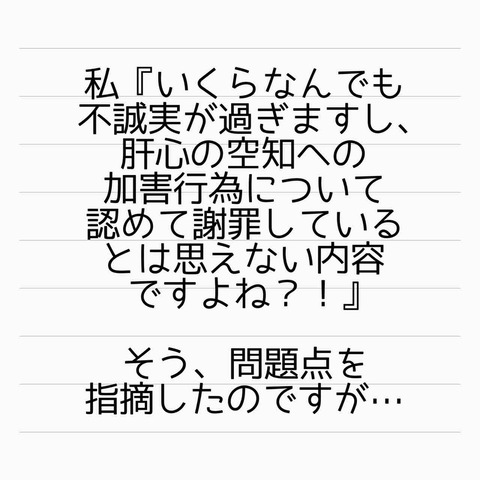 私『いくらなんでも
不誠実が過ぎますし、
肝心の空知への
加害行為について
認めて謝罪している
とは思えない内容
ですよね?!』
そう、問題点を
指摘したのですが…